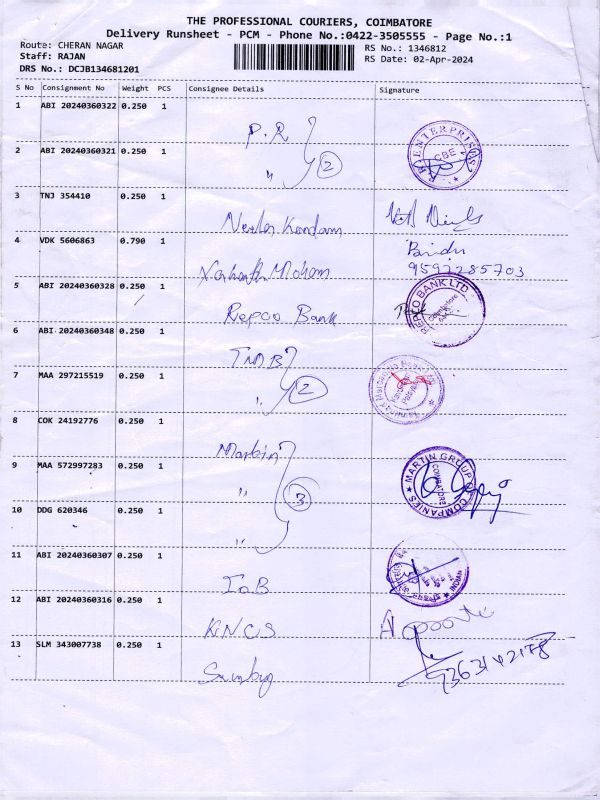 THE PROFESSIONAL COURIERS, COIMBATORE
Delivery Runsheet - PCM - Phone No.:0422-3505555 - Page No.:1
Route: CHERAN NAGAR RS No.: 1346812
Staff: RAJAN RS Date: 02-Apr-2024
DRS No.: DCJB134681201
S No Consignment No Weight PCS Consignee Details Signature
1 ABI 20240360322 0.250 1
P.R
ENTERPRISES
CBE
2 ABI 20240360321 0.250 1
" 2
3 TNJ 354410 0.250 1
4 VDK 5606863 0.790 1
9597285703
Moham
5 ABI 20240360328 0.250 1
REPCO BANK LTD
Coimbatore
Repco Bank
6 ABI 20240360348 0.250 1
TMB
7 MAA 297215519 0.250 1
" 2
8 COK 24192776 0.250 1
Martin
9 MAA 572997283 0.250 1
MARTIN GROUP OF COMPANIES
COIMBATORE
" 3
10 DDG 620346 0.250 1
"
11 ABI 20240360307 0.250 1
INDIAN
IOB
12 ABI 20240360316 0.250 1
KNCS
13 SLM 343007738 0.250 1